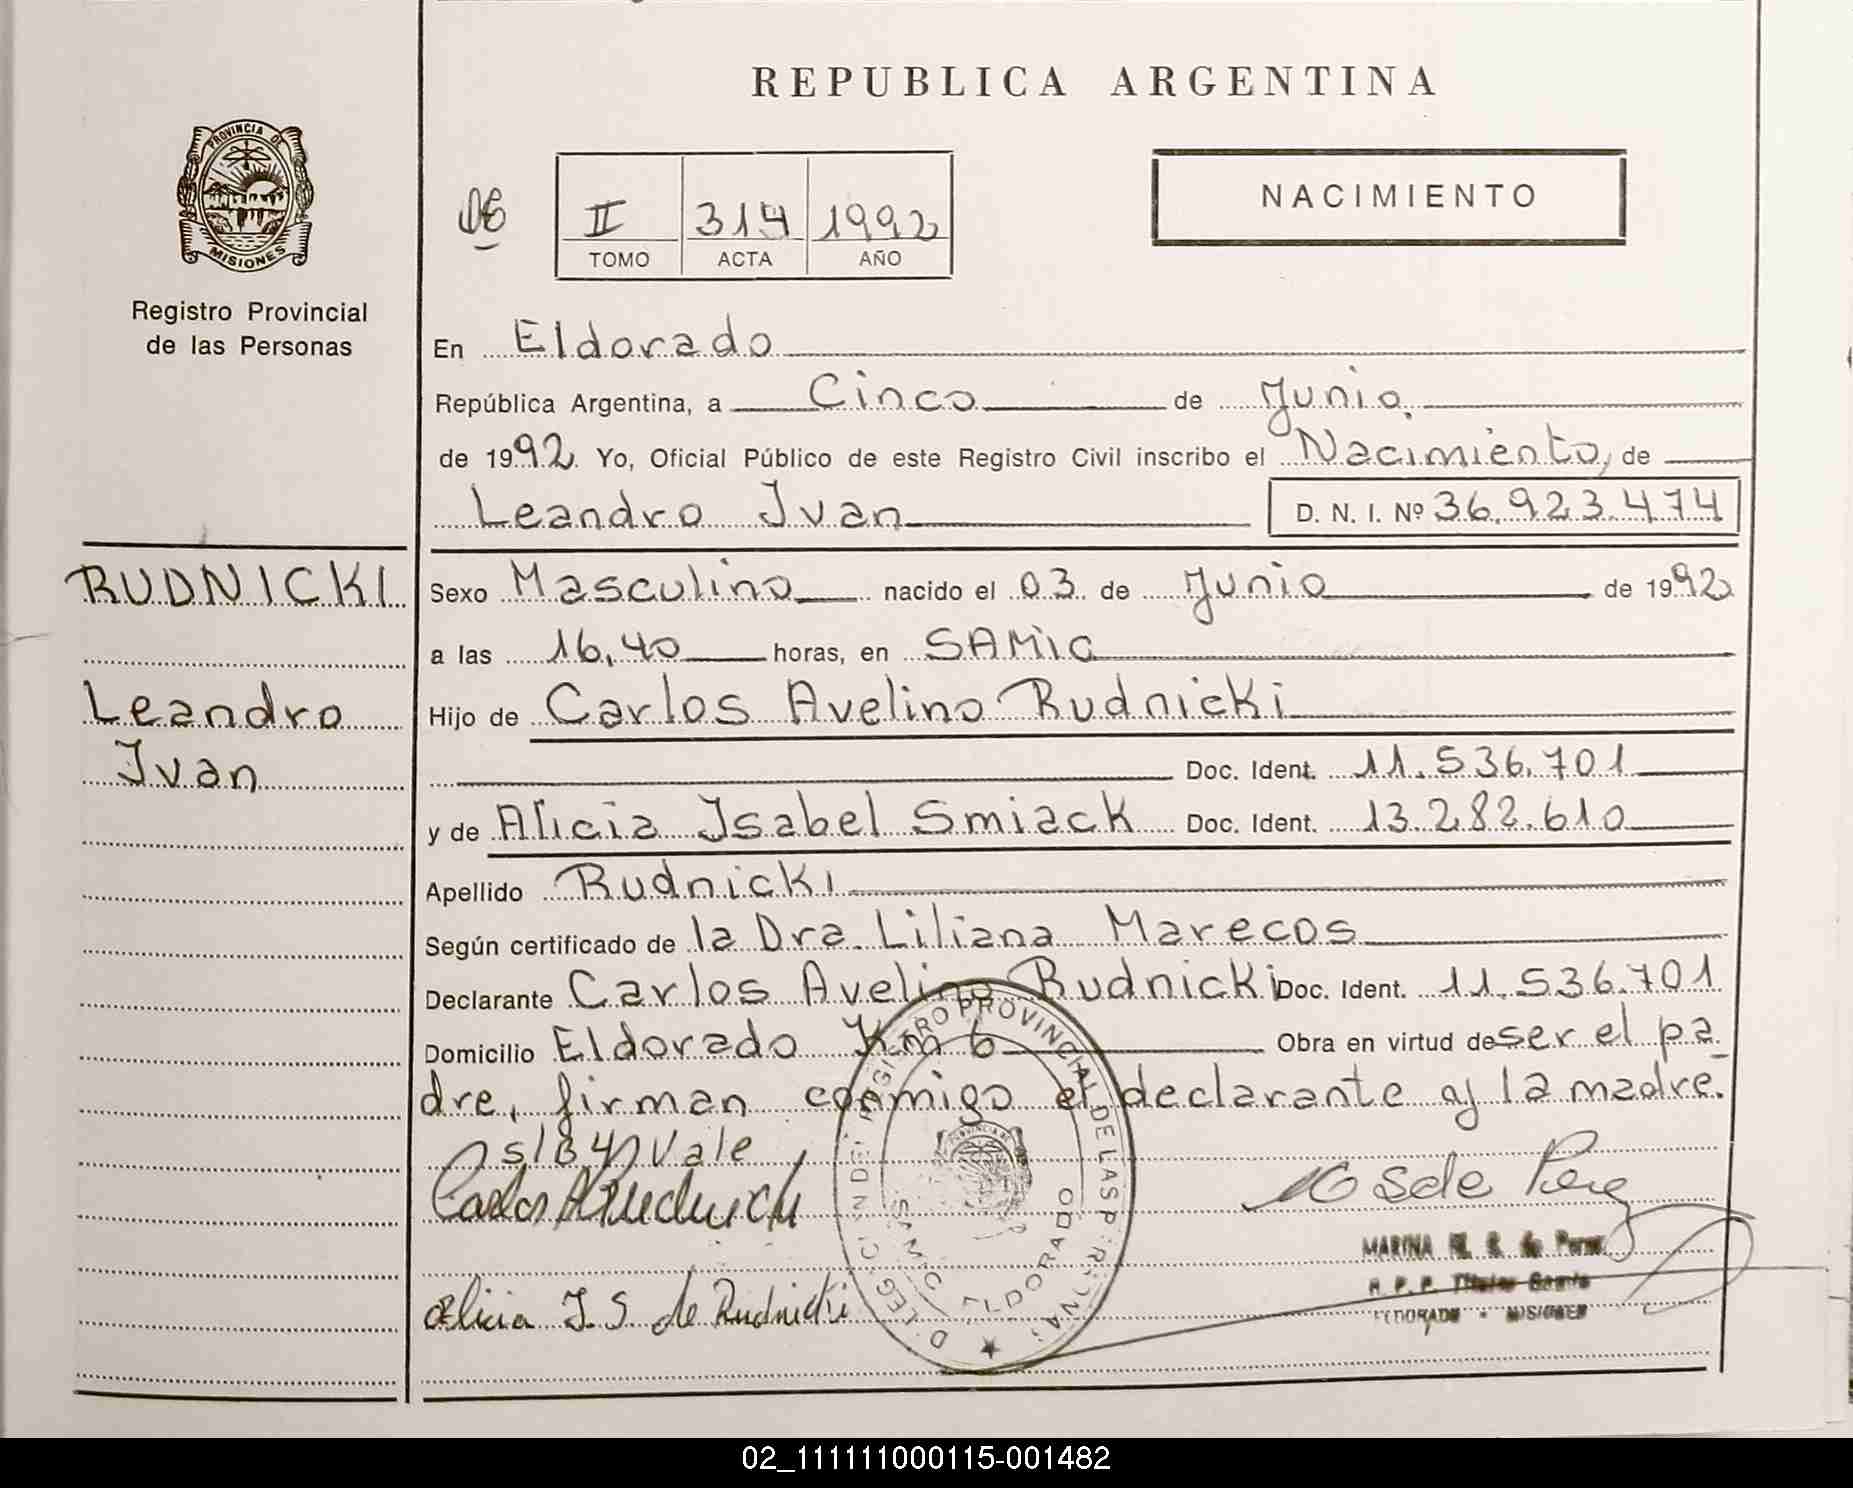 REPUBLICA ARGENTINA
PROVINCIA DE
MISIONES
Registro Provincial
de las Personas
06
II 314 1992
TOMO ACTA AÑO
NACIMIENTO
En Eldorado
República Argentina, a Cinco de Junio
de 1992. Yo, Oficial Público de este Registro Civil inscribo el Nacimiento, de
Leandro Ivan D. N. I. Nº 36.923.474
RUDNICKI
Leandro
Ivan
Sexo Masculino nacido el 03 de Junio de 1992
a las 16,40 horas, en SAMIC
Hijo de Carlos Avelino Rudnicki
Doc. Ident. 11.536.701
y de Alicia Isabel Smiack Doc. Ident. 13.282.610
Apellido Rudnicki
Según certificado de la Dra. Liliana Marecos
Declarante Carlos Avelino Rudnicki Doc. Ident. 11.536.701
Domicilio Eldorado Km 6 Obra en virtud de ser el pa_
dre, firman conmigo el declarante y la madre.
Vale
Carlos A Rudnicki
S de Perez
REGISTRO PROVINCIAL DE LAS
ELDORADO
MARINA de Perez
Titular
ELDORADO - MISIONES
Alicia I. S. de Rudnicki
02_111111000115-001482